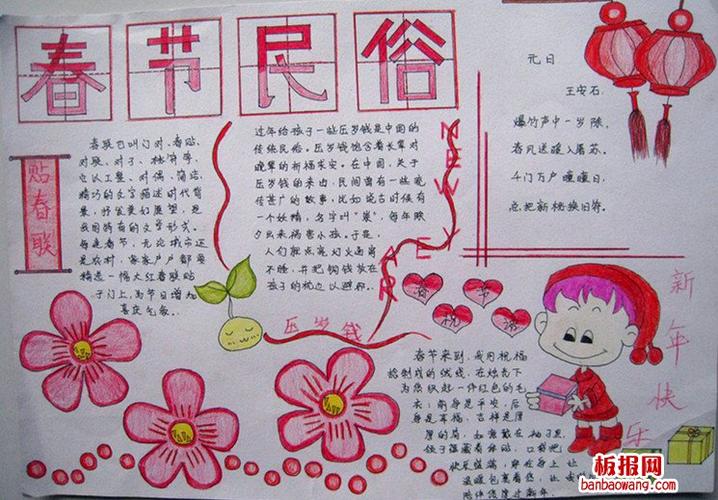 春节民俗
贴春联
春联也叫门对、春贴、
对联、对子、桃符等,
它以工整、对偶、简洁、
精巧的文字描述时代背
景,抒发美好愿望,是
我国特有的文学形式。
每逢春节,无论城市还
是农村,家家户户都要
精选一幅大红春联贴
于门上,为节日增加
喜庆气氛。
过年给孩子一些压岁钱是中国的
传统民俗。压岁钱饱含着长辈对
晚辈的祈福求安。在中国,关于
压岁钱的来由,民间曾有一些流
传甚广的故事,比如说古时候有
一个妖精,名字叫"祟",每年除
夕出来祸害小孩。于是,
人们就点亮灯火通宵
不睡,并把铜钱放在
孩子的枕边以避邪。
压岁钱
NEW
YEAR
元日
王安石
爆竹声中一岁除,
春风送暖入屠苏。
千门万户曈曈日,
总把新桃换旧符。
春节
祝
春节来到,我用祝福
在
为您织起一件红色的毛
衣:前身是平安,后
身是幸福,吉祥是厚
厚的肩,如意
领子
新年快乐
板报网
banbaowang.com